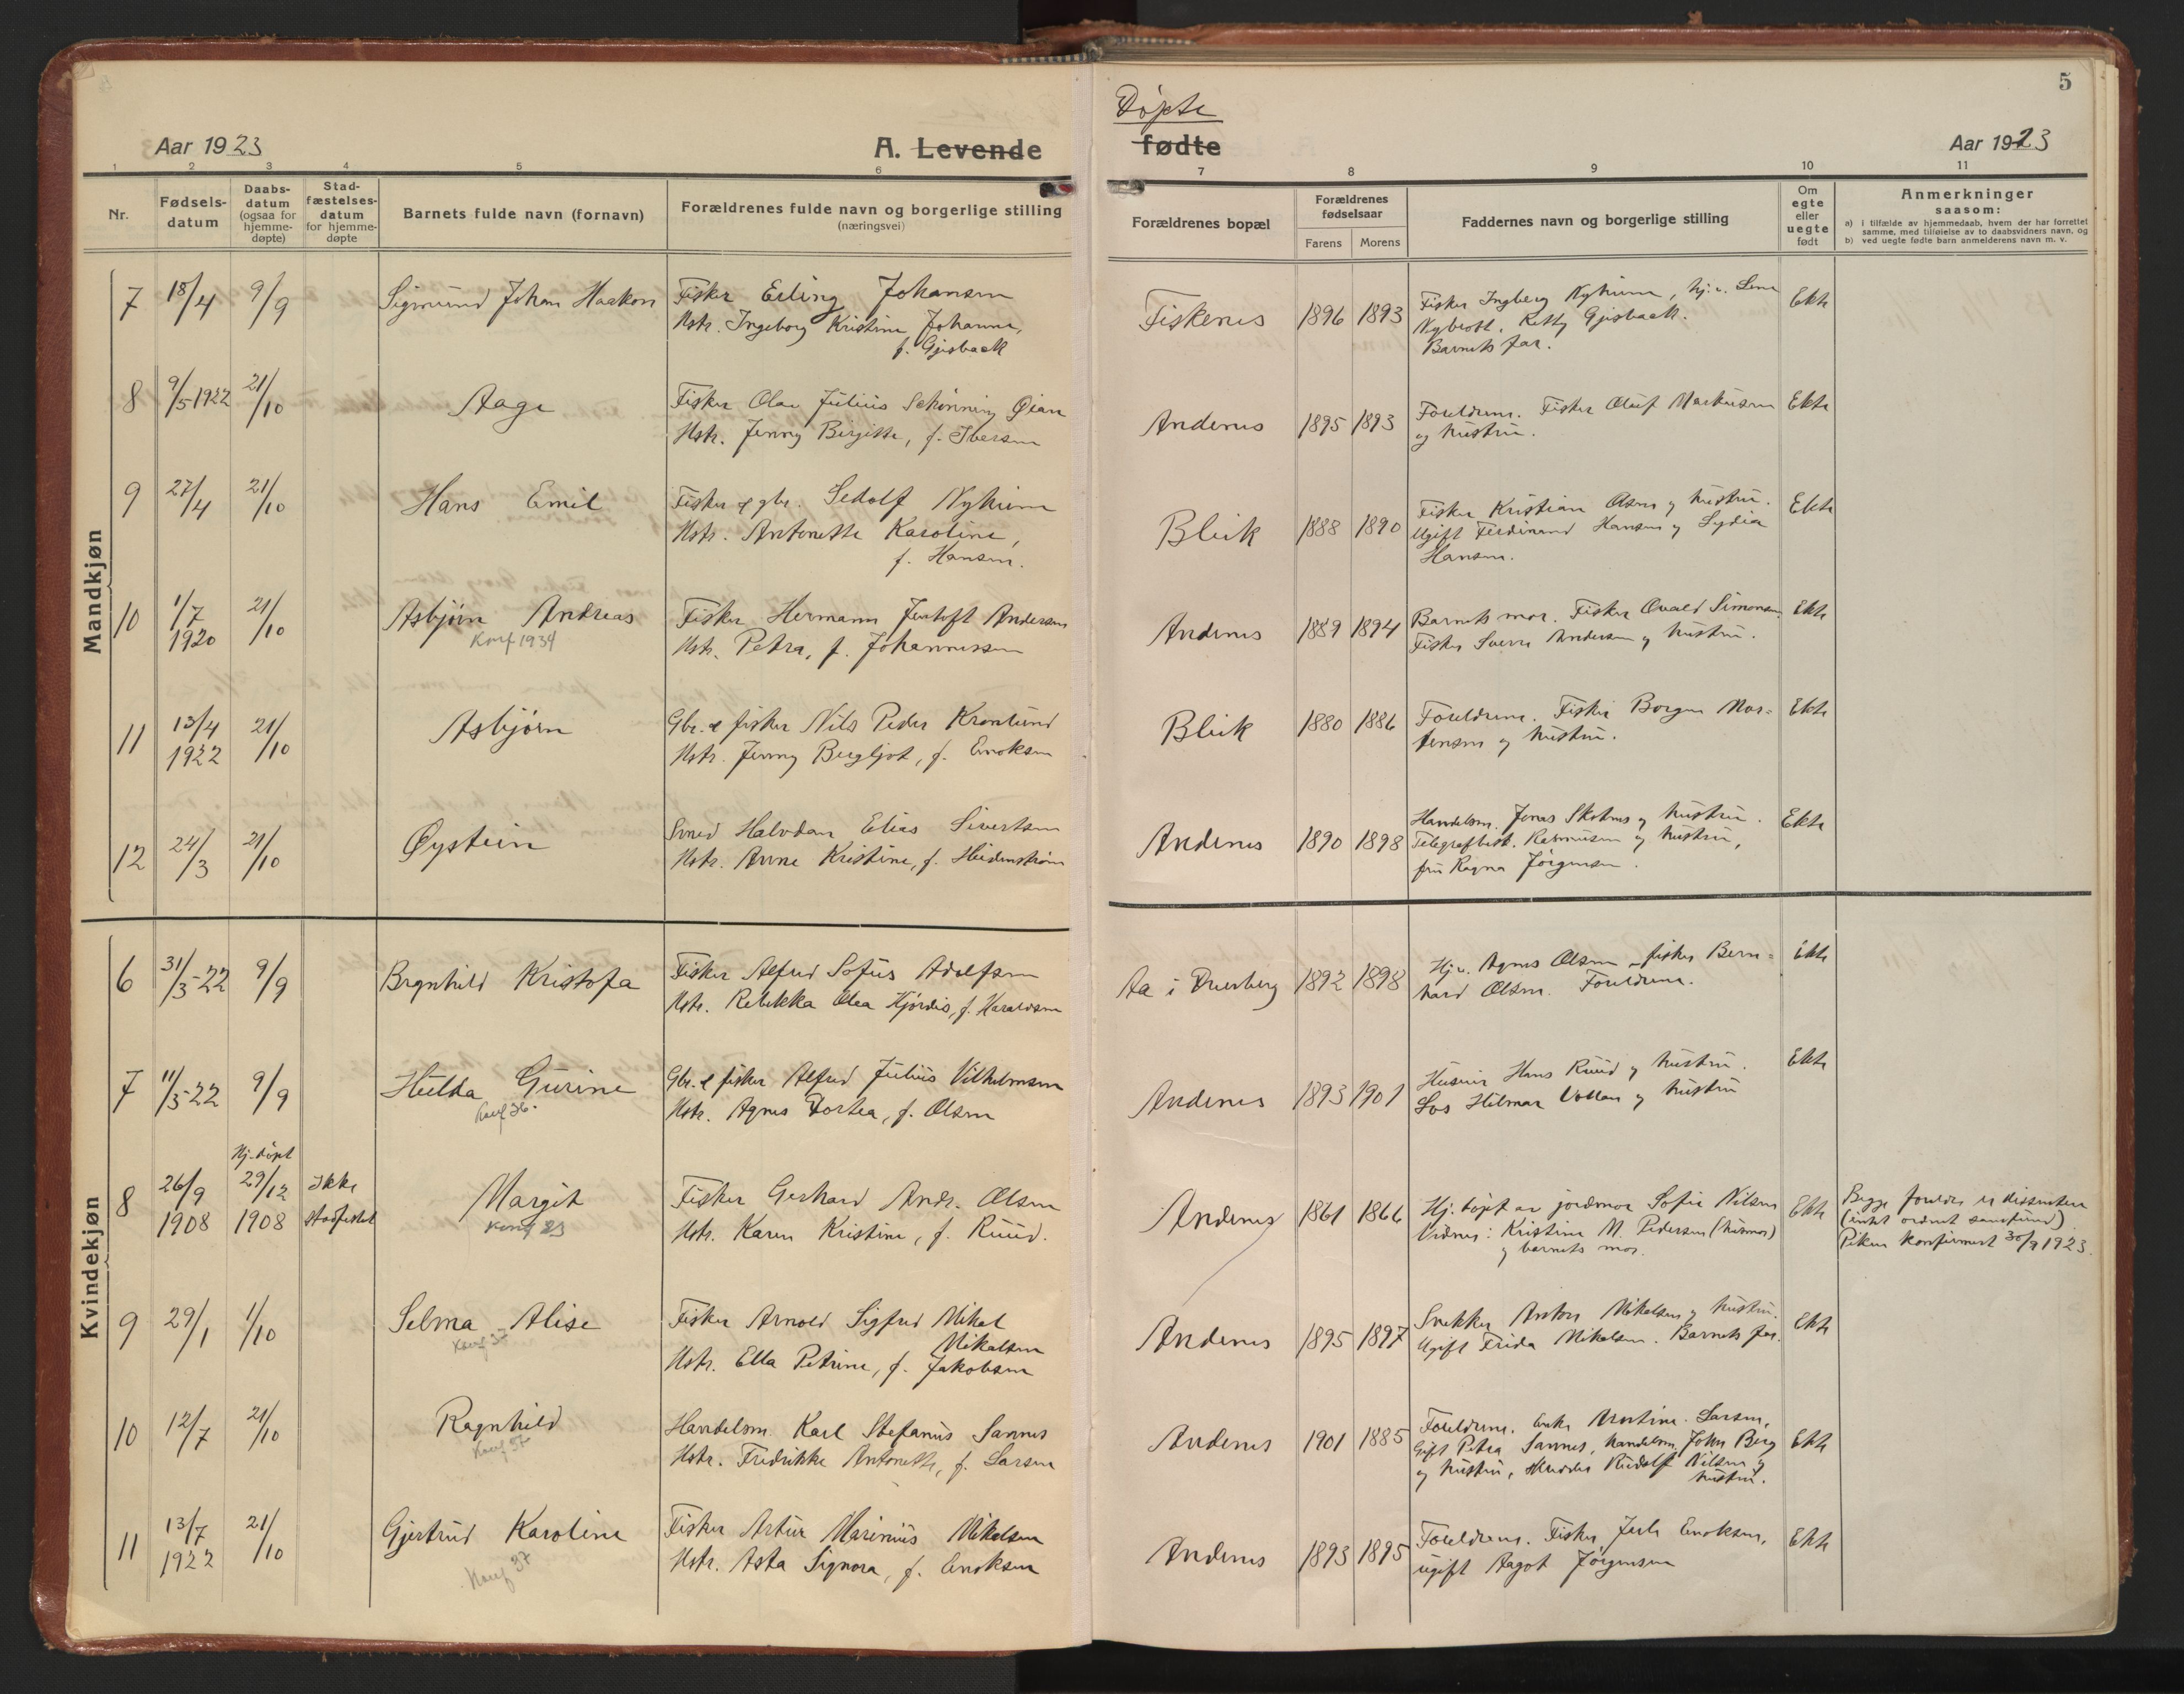 5
Døpte
Aar 1923
A. Levende
fødte
Aar 1923
1 2 3 4 5 6 7 8 9 10 11
Nr.
Fødsels-
datum
Daabs-
datum
(ogsaa for
hjemme-
døpte)
Stad-
fæstelses-
datum
for hjemme-
døpte
Barnets fulde navn (fornavn)
Forældrenes fulde navn og borgerlige stilling
(næringsvei)
Forældrenes bopæl
Forældrenes
fødselsaar
Farens Morens
Faddernes navn og borgerlige stilling
Om
egte
eller
uegte
født
Anmerkninger
saasom:
a) i tilfælde av hjemmedaab, hvem der har forrettet
samme, med tilføielse av to daabsvidners navn, og
b) ved uegte fødte barn anmelderens navn m. v.
Mandkjøn
7 18/4 9/9 Sigmund Johan Haakon Fisker Erling Johansen
Hstr. Ingeborg Kristine Johanne,
f. Gjisbakk
Fiskenes 1896 1893 Fisker Ingberg Nyheim, hj.v. Lina
Nybrott. Ketty Gjisbakk.
Barnets far.
Ekte
8 9/5-1922 21/10 Aage Fisker Olav Julius Schønning Øian
Hstr. Jenny Birgitte, f. Ibersen
Andenes 1895 1893 Foreldrene. Fisker Oluf Markusen
og hustru.
Ekte
9 27/4 21/10 Hans Emil Fisker & gbr. Sedolf Nyheim
Hstr. Antonette Karoline,
f. Hansen.
Bleik 1888 1890 Fisker Kristian Olsen og hustru.
Ugift Ferdinand Hansen og Lydia
Hansen.
Ekte
10 1/7
1920
21/10 Asbjørn Andreas
Konf 1934
Fisker Hermann Jentoft Andersen
Hstr. Petra, f. Johannessen
Andenes 1889 1894 Barnets mor. Fisker Ovald Simonsen.
Fisker Sverre Andersen og hustru.
Ekte
11 13/4
1922
21/10 Asbjørn Gbr. & fisker Nils Peder Kronlund
Hstr. Jenny Bergljot, f. Enoksen
Bleik 1880 1886 Foreldrene. Fisker Borgen Mor=
tensen og hustru.
Ekte
12 24/3 21/10 Øystein Smed Halvdan Elias Sivertsen
Hstr. Anne Kristine, f. Heidenstrøm
Andenes 1890 1898 Handelsm. Jonas Skotnes og hustru.
Telegrafbest. Rasmusen og hustru,
fru Ragna Jörgensen.
Ekte
Kvindekjøn
6 31/3-22 9/9 Brynhild Kristofa Fisker Alfred Sofus Adolfsen
Hstr. Rebekka Olea Hjördis, f. Haraldsen
Aa i Dverberg 1892 1898 Hj.v. Agnes Olsen – fisker Bern=
hard Olsen. Foreldrene.
Ekte
7 11/3-22 9/9 Hulda Gurine
Konf 36.
Gbr. & fisker Alfred Julius Vilhelmsen
Hstr. Agnes Dortea, f. Olsen
Andenes 1893 1901 Huseier Hans Ruud og hustru.
Los Hilmar Vollan og hustru
Ekte
8 26/9
1908
Hj.døpt
29/12
1908
Ikke
stadfestet
Margit
Konf 23
Fisker Gerhard Andr. Olsen
Hstr. Karen Kristine, f. Ruud.
Andenes 1861 1866 Hj.døpt av jordmor Sofie Nilsen
Vidner: Kristine M. Pedersen (husmor)
og barnets mor.
Ekte
Begge foreldre er dissentere
(intet ordnet samfund).
Piken konfirmert 30/9 1923.
9 29/1 1/10 Selma Alise
Konf 37
Fisker Arnold Sigfred Mikal
Mikalsen
Hstr. Ella Petrine, f. Jakobsen
Andenes 1895 1897 Snekker Anton Mikalsen og hustru.
Ugift Frida Mikalsen. Barnets far.
Ekte
10 12/7 21/10 Ragnhild
Konf 37
Handelsm. Karl Stefanus Sannes
Hstr. Fredrikke Antonette, f. Larsen
Andenes 1901 1885 Foreldrene. Enke Arntine Larsen,
Gift Petra Sannes, handelsm. John Berg
og hustru, Rudolf Nilsen og
hustru.
Ekte
11 13/7
1922
21/10 Gjertrud Karoline
Konf 37
Fisker Artur Marinius Mikalsen
Hstr. Asta Signora, f. Enoksen
Andenes 1893 1895 Foreldrene. Fisker Jarle Enoksen,
ugift Aagot Jörgensen
Ekte